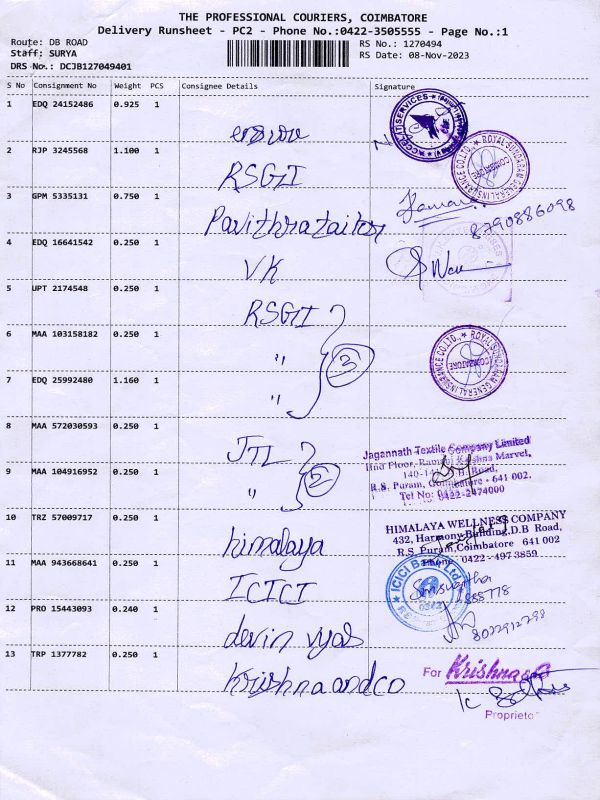 THE PROFESSIONAL COURIERS, COIMBATORE
Delivery Runsheet - PC2 - Phone No.:0422-3505555 - Page No.:1
Route: DB ROAD
Staff: SURYA
DRS No.: DCJB127049401
RS No.: 1270494
RS Date: 08-Nov-2023
S No Consignment No Weight PCS Consignee Details Signature
1 EDQ 24152486 0.925 1
2 RJP 3245568 1.100 1 RSGI
3 GPM 5335131 0.750 1 Pavithra tailor
8790886098
4 EDQ 16641542 0.250 1 VK
5 UPT 2174548 0.250 1 RSGI
6 MAA 103158182 0.250 1 " 3
7 EDQ 25992480 1.160 1 "
8 MAA 572030593 0.250 1 JTL
9 MAA 104916952 0.250 1 " 2
10 TRZ 57009717 0.250 1 himalaya
11 MAA 943668641 0.250 1 ICICI
12 PRO 15443093 0.240 1 devin vyas
13 TRP 1377782 0.250 1 Krishna and co
ROYAL SUNDARAM GENERAL INSURANCE CO. LTD.,
COIMBATORE
ROYAL SUNDARAM GENERAL INSURANCE CO. LTD.,
COIMBATORE
Jagannath Textile Company Limited
IInd Floor, Krishna Marvel,
Road,
R.S. Puram, Coimbatore - 641 002.
Tel No: 0422-2474000
HIMALAYA WELLNESS COMPANY
432, Harmony Building, D.B Road,
R.S. Puram, Coimbatore 641 002
Phone 0422 - 497 3859
ICICI Bank Ltd
8022912798
For Krishna & Co
Proprietor